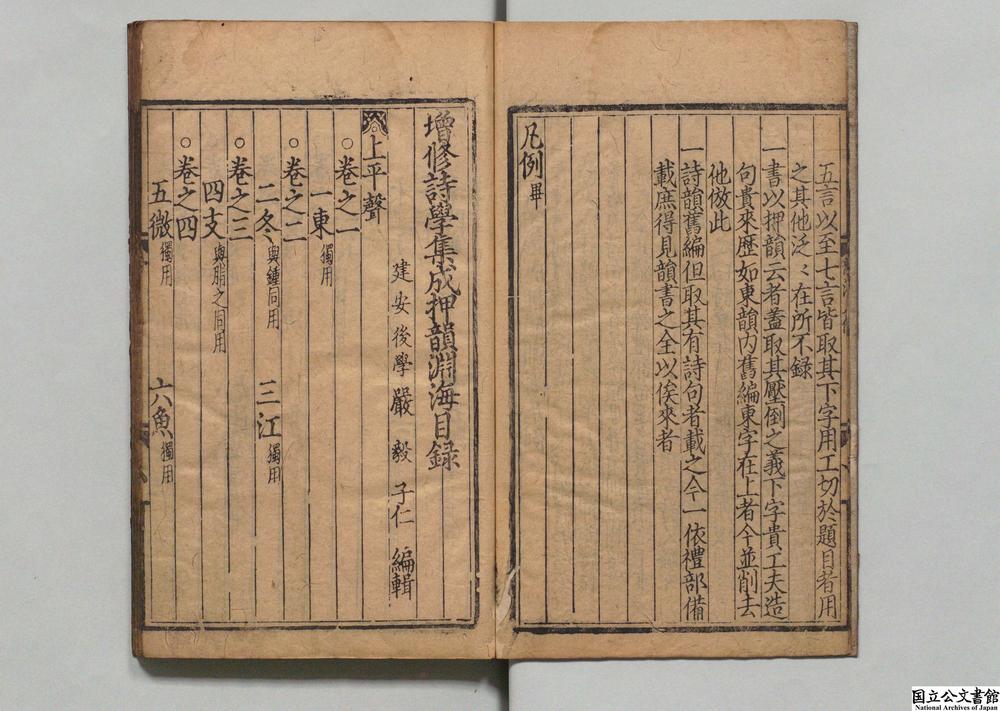 五言以至七言皆取其下字用工切於題目者用
之其他泛〻在所不錄
一書以押韻云者蓋取其壓倒之義下字貴工夫造
句貴來歷如東韻內舊編東字在上者今並削去
他倣此
一詩韻舊編但取其有詩句者載之今一依禮部備
載庶得見韻書之全以俟來者
凡例畢
增修詩學集成押韻淵海目録
建安後學嚴毅子仁編輯
上平聲
○卷之一
一東獨用
○卷之二
二冬與鍾同用 三江獨用
○卷之三
四支與脂之同用
○卷之四
五微獨用 六魚獨用
国立公文書館
National Archives of Japan